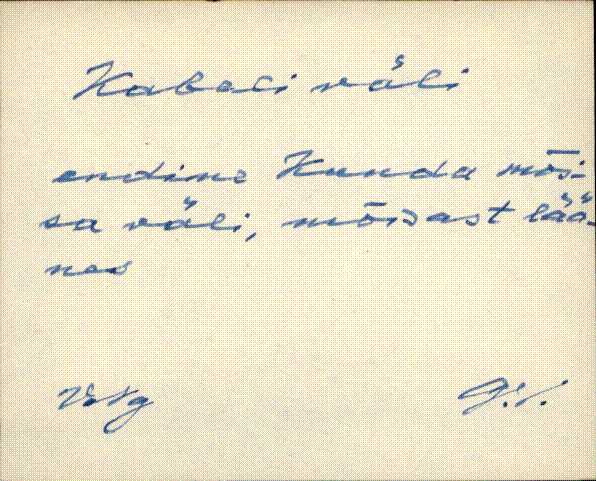 Kabeli väli
endine Kunda mõi-
sa väli, mõisast lää-
nes
VNg